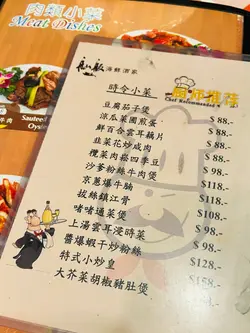 肉類小菜
Meat Dishes
海鮮酒家
時令小菜
廚師推薦
Chef Recommended
豆腐茄子煲 $ 88.-
涼瓜菜圃煎蛋 $ 88.-
鮮百合雲耳藕片 $ 88.-
韭菜花炒咸肉 $ 88.-
欖菜肉崧四季豆 $ 98.-
沙爹粉絲牛肉煲 $ 98.-
京蔥爆牛𦟌 $118.-
拔絲鎮江骨 $108.-
啫啫通菜煲 $ 98.-
上湯雲耳浸時菜 $ 88.-
醬爆蝦干炒粉絲 $ 98.-
特式小炒皇 $128.-
大芥菜胡椒豬肚煲 $158.-